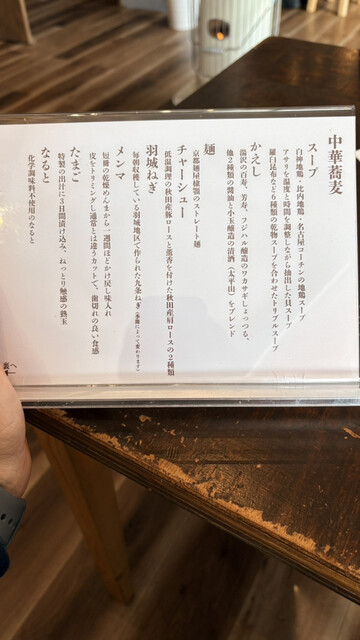 中華蕎麦
スープ
白神地鶏・比内地鶏・名古屋コーチンの地鶏スープ
アサリを温度と時間を調整しながら抽出した貝スープ
羅臼昆布など6種類の乾物スープを合わせたトリプルスープ
かえし
湯沢の百寿、芳寿、フジハル醸造のワカサギしょっつる、
他2種類の醤油と小玉醸造の清酒（太平山）をブレンド
麺
京都麺屋棣鄂のストレート麺
チャーシュー
低温調理の秋田産豚ロースと薫香を付けた秋田産肩ロースの2種類
羽城ねぎ
毎朝収穫している羽城地区で作られた九条ねぎ（季節によって変わります）
メンマ
短冊の乾燥めんまから一週間ほどかけ戻し味入れ
皮をトリミングし通常とは違うカットで、歯切れの良い食感
たまご
特製の出汁に3日間漬け込み、ねっとり触感の熟玉
なると
化学調味料不使用のなると
裏へ